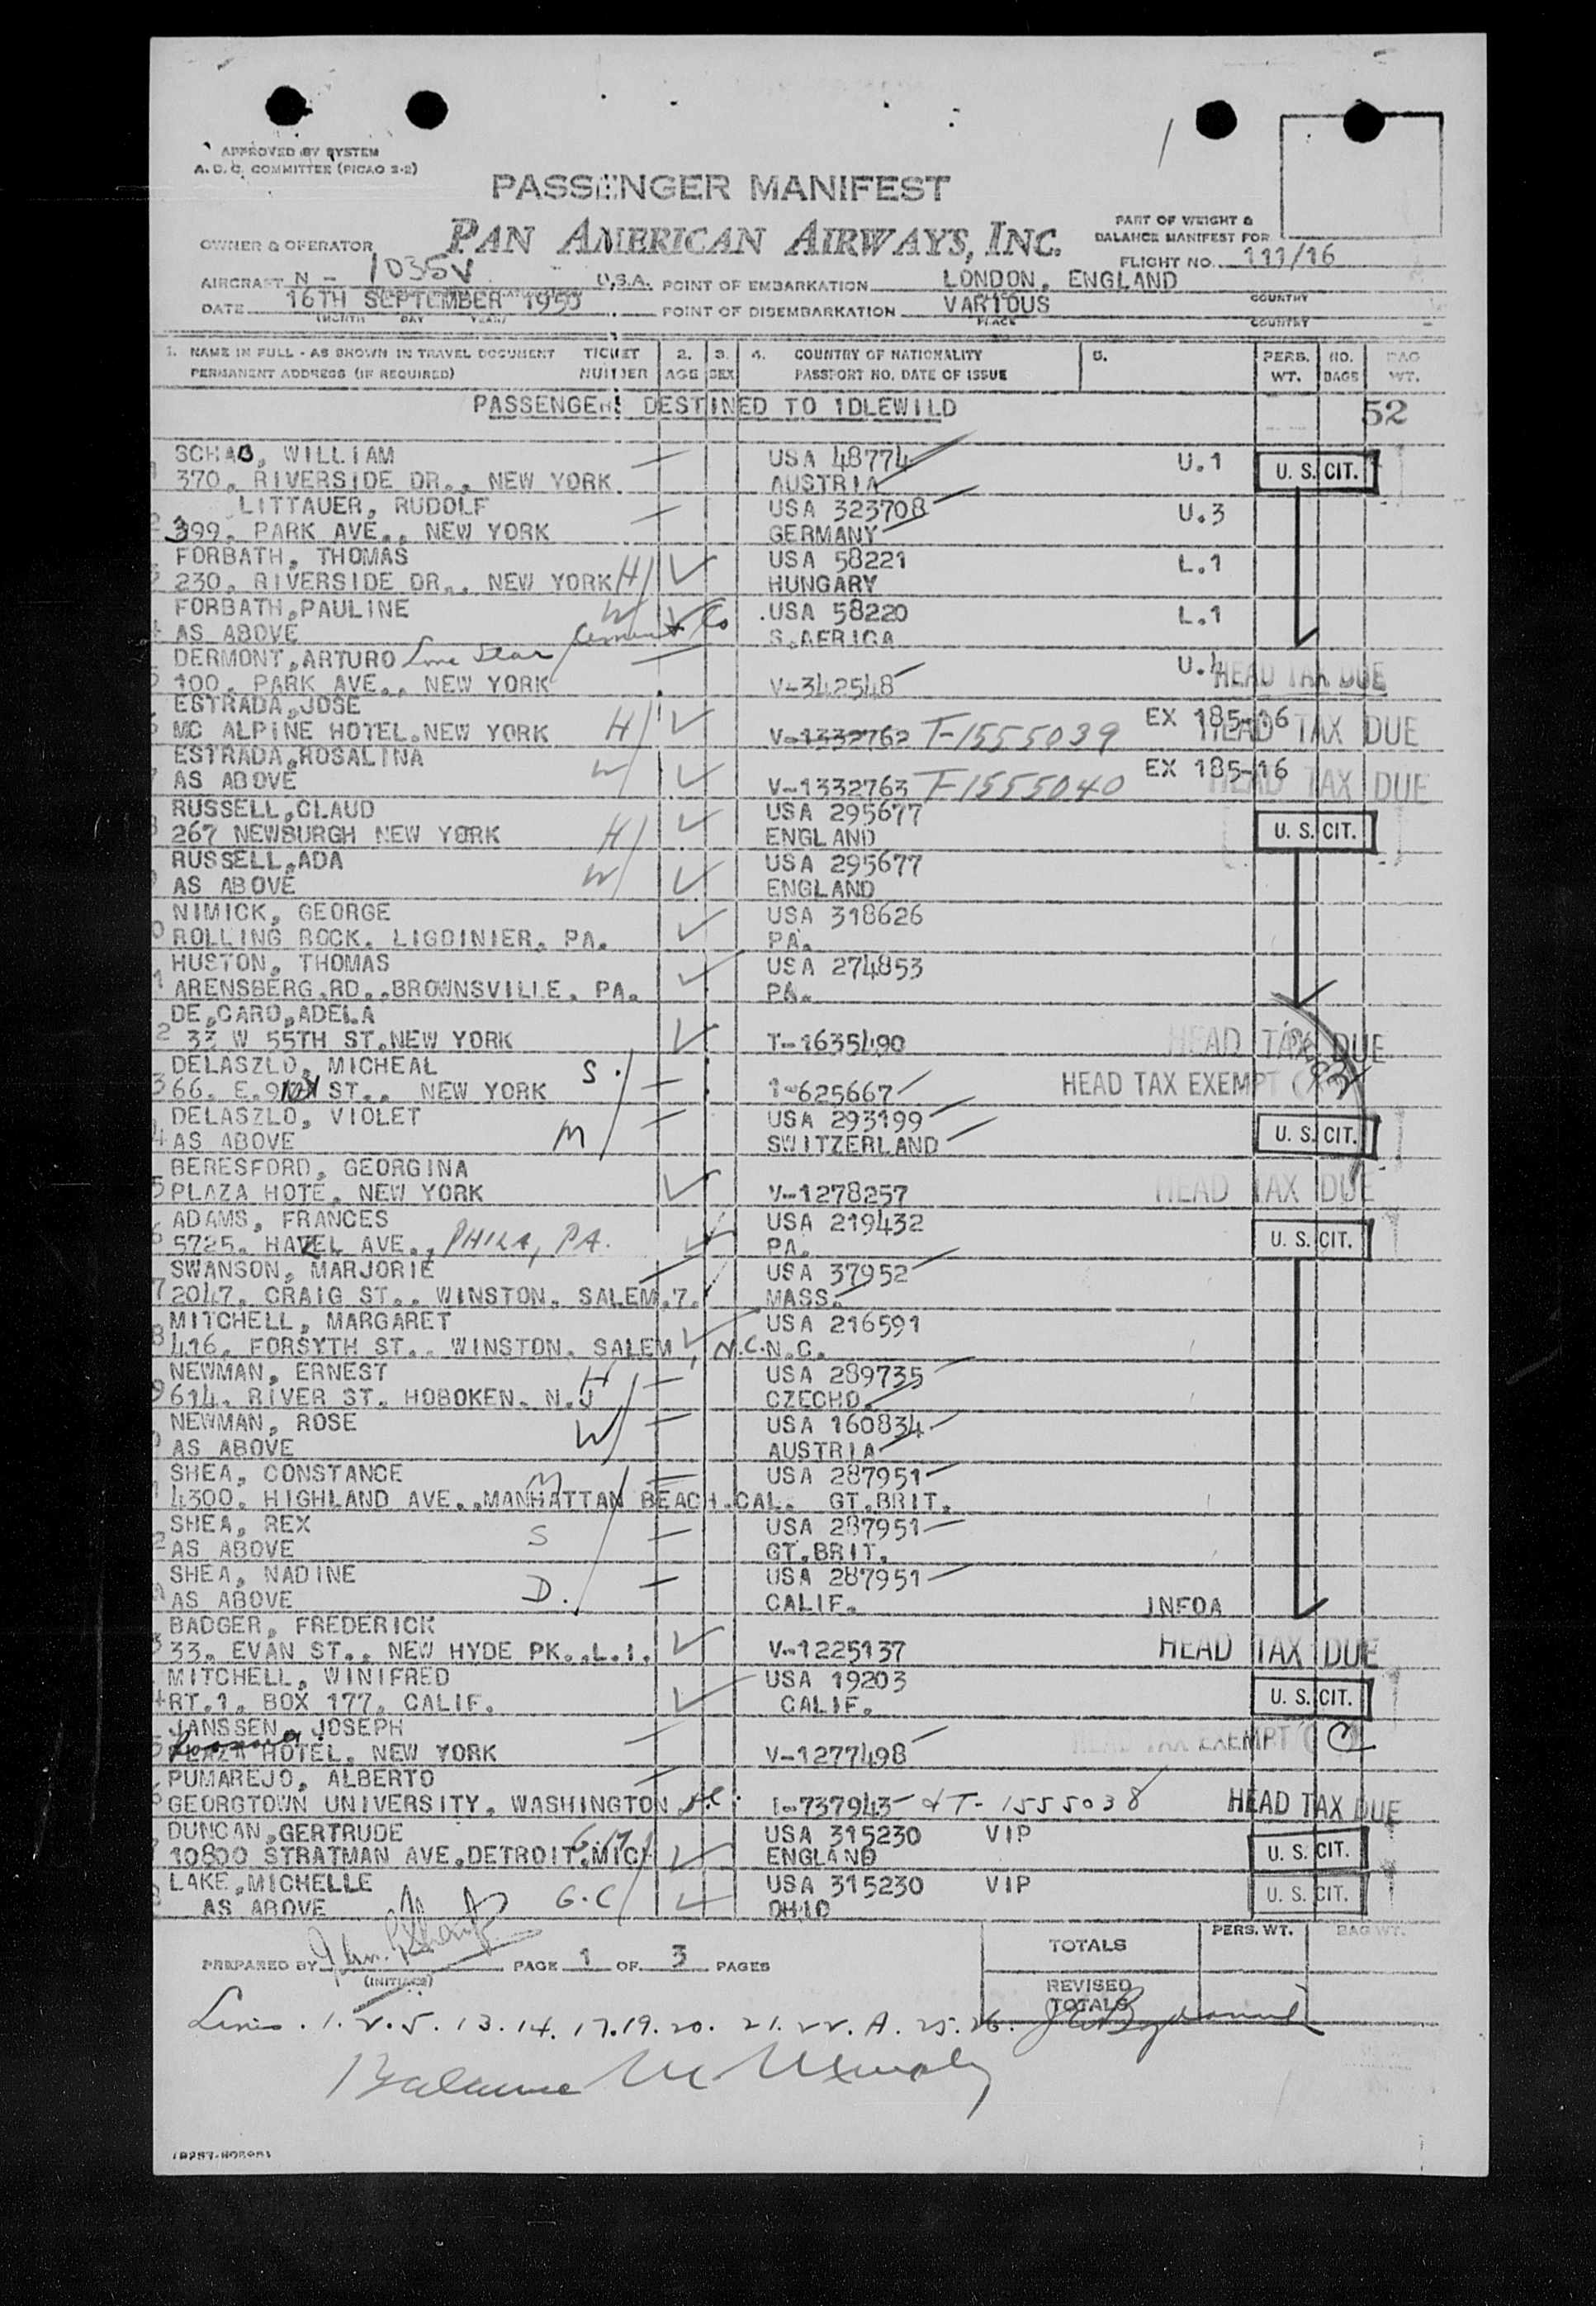 APPROVED BY SYSTEM
A. O. C. COMMITTEE (PICAO 2-2)
PASSENGER MANIFEST
OWNER & OPERATOR PAN AMERICAN AIRWAYS, INC.
PART OF WEIGHT &
BALANCE MANIFEST FOR
FLIGHT NO. 111/16
AIRCRAFT N - 1035V U.S.A. POINT OF EMBARKATION LONDON, ENGLAND
COUNTRY
DATE 16TH SEPTEMBER 1953 POINT OF DISEMBARKATION VARIOUS
(MONTH DAY YEAR) PLACE COUNTRY
1. NAME IN FULL - AS SHOWN IN TRAVEL DOCUMENT TICKET 2. 3. 4. COUNTRY OF NATIONALITY 5. PERS. NO. BAG
PERMANENT ADDRESS (IF REQUIRED) NUMBER AGE SEX PASSPORT NO. DATE OF ISSUE WT. BAGS WT.
PASSENGERS DESTINED TO IDLEWILD 52
SCHAB, WILLIAM USA 48774 U.1 U. S. CIT.
370. RIVERSIDE DR., NEW YORK. AUSTRIA
LITTAUER, RUDOLF USA 323708 U.3
2 399. PARK AVE., NEW YORK GERMANY
FORBATH, THOMAS USA 58221 L.1
230. RIVERSIDE DR., NEW YORK H HUNGARY
FORBATH,PAULINE W USA 58220 L.1
4 AS ABOVE S.AFRICA
DERMONT,ARTURO Lone Star Cement Co U.4 HEAD TAX DUE
100. PARK AVE., NEW YORK V-342548
ESTRADA,JOSE EX 185-16
MC ALPINE HOTEL.NEW YORK H V-1332762 T-1555039 HEAD TAX DUE
ESTRADA,ROSALINA W EX 185-16
AS ABOVE V-1332763 T-1555040 HEAD TAX DUE
RUSSELL,CLAUD USA 295677 U. S. CIT.
267 NEWBURGH NEW YORK H ENGLAND
RUSSELL,ADA USA 295677
AS ABOVE W ENGLAND
NIMICK, GEORGE USA 318626
0 ROLLING ROCK. LIGOINIER, PA. PA.
HUSTON, THOMAS USA 274853
1 ARENSBERG.RD..BROWNSVILLE. PA. PA.
DE,CARO,ADELA
2 33 W 55TH ST.NEW YORK T-1635490 HEAD TAX DUE
DELASZLO, MICHEAL S.
3 66. E. ST., NEW YORK 625667 HEAD TAX EXEMPT
DELASZLO, VIOLET USA 293199
4 AS ABOVE M SWITZERLAND U. S. CIT.
BERESFORD, GEORGINA
5 PLAZA HOTE, NEW YORK V-1278257 HEAD TAX DUE
ADAMS, FRANCES USA 219432
6 5725. HAZEL AVE., PHILA, PA. PA. U. S. CIT.
SWANSON, MARJORIE USA 37952
7 2047. CRAIG ST., WINSTON. SALEM.7. MASS.
MITCHELL, MARGARET USA 216591
8 416. FORSYTH ST., WINSTON. SALEM, N.C. N.C.
NEWMAN, ERNEST H USA 289735
9 614. RIVER ST. HOBOKEN. N.J CZECHO.
NEWMAN, ROSE USA 160834
AS ABOVE W AUSTRIA
SHEA, CONSTANCE M USA 287951
4300. HIGHLAND AVE..MANHATTAN BEACH.CAL. GT.BRIT.
SHEA, REX S USA 287951
2 AS ABOVE GT.BRIT.
SHEA, NADINE USA 287951
A AS ABOVE D. CALIF. INFOA
BADGER, FREDERICK
3 33. EVAN ST., NEW HYDE PK..L.I. V-1225137 HEAD TAX DUE
MITCHELL, WINIFRED USA 19203
4 RT.1. BOX 177. CALIF. CALIF. U. S. CIT.
JANSSEN, JOSEPH
5 PLAZA HOTEL. NEW YORK V-1277498 HEAD TAX EXEMPT
PUMAREJO, ALBERTO
GEORGTOWN UNIVERSITY. WASHINGTON D.C. 737943 & T- 1555038 HEAD TAX DUE
DUNCAN,GERTRUDE USA 315230 VIP
10800 STRATMAN AVE.DETROIT.MICH G.M ENGLAND U. S. CIT.
LAKE,MICHELLE USA 315230 VIP
AS ABOVE G.C OHIO U. S. CIT.
PERS. WT. BAG WT.
TOTALS
PREPARED BY PAGE 1 OF 3 PAGES
(INITIALS)
REVISED
TOTALS
Lines . 1. 2. 5. 13. 14. 17. 19. 20. 21. 22. A. 25. 26.
Balance